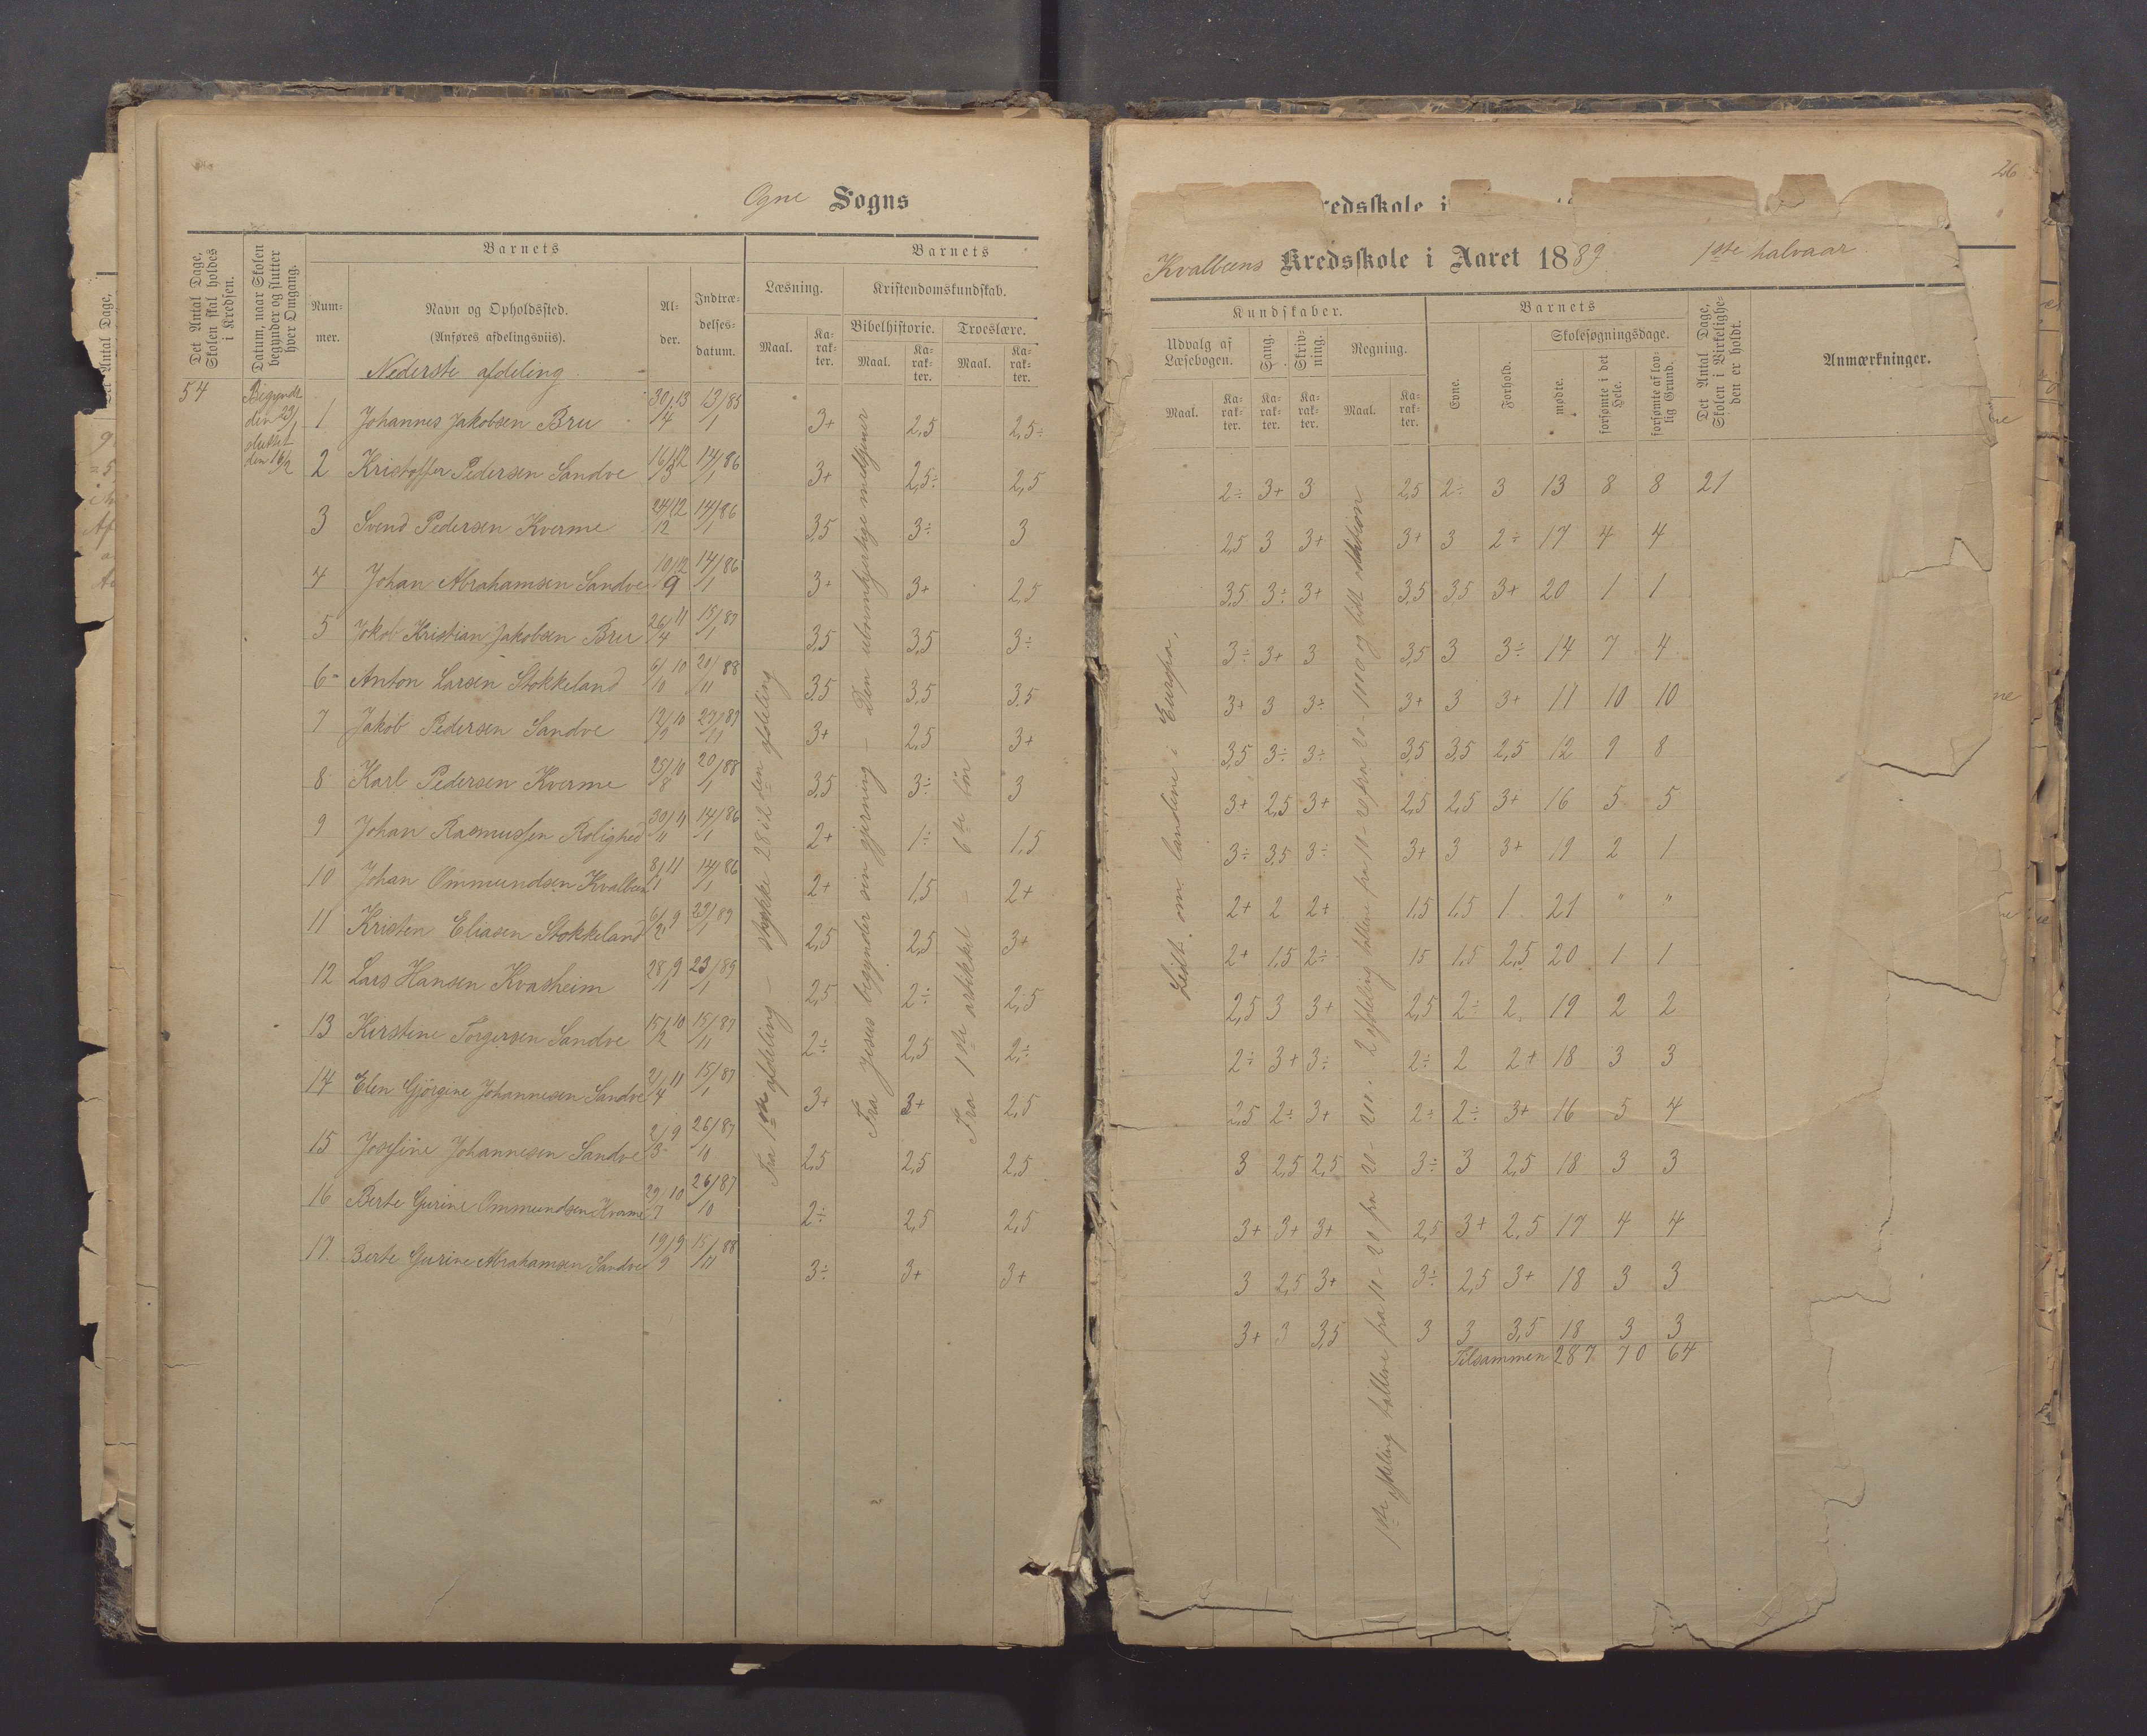 Ogne Sogns
Det Antal Dage, Skolen skal holdes i Kredsen.
Datum, naar Skolen begynder og slutter hver Omgang.
Barnets
Nummer.
Navn og Opholdssted.
(Anføres afdelingsviis).
Alder.
Indtrædelsesdatum.
Barnets
Læsning.
Kristendomskundskab.
Bibelhistorie.
Troeslære.
Maal. Karakter. Maal. Karakter. Maal. Karakter.
Nederste afdeling
54
Begyndt
den 23/1
sluttet
den 16/2
1 Johannes Jakobsen Bru 30/4 13 13/1 85 3+ 2,5 2,5÷
2 Kristoffer Pedersen Sandve 16/3 12 14/1 86 3+ 2,5÷ 2,5
3 Svend Pedersen Kverme 24/12 12 14/1 86 3,5 3÷ 3
4 Johan Abrahamsen Sandve 10/9 12 14/1 86 3+ 3+ 2,5
5 Jakob Kristian Jakobsen Bru 26/4 11 15/1 87 3,5 3,5 3÷
6 Anton Larsen Stokkeland 6/10 10 20/11 88 3,5 3,5 3,5
7 Jakob Pedersen Sandve 12/9 10 27/11 87 3+ 2,5 3+
8 Karl Pedersen Kverme 25/8 10 20/1 88 3,5 3÷ 3
9 Johan Rasmussen Rolighed 30/11 11 14/1 86 2+ 1÷ 1,5
10 Johan Ommundsen Kvalbein 8/1 11 14/1 86 2+ 1,5 2+
11 Kristen Eliasen Stokkeland 6/2 9 23/1 89 2,5 2,5 3+
12 Lars Hansen Kvasheim 28/1 9 23/1 89 2,5 2÷ 2,5
13 Kirstine Torgersen Sandve 15/12 10 15/11 87 2÷ 2,5 2÷
14 Elen Gjörgine Johannesen Sandve 21/4 11 15/1 87 3+ 3+ 2,5
15 Josefine Johannesen Sandve 2/3 9 26/10 87 2,5 2,5 2,5
16 Berte Gurine Ommundsen Kverme 29/7 10 26/10 87 2÷ 2,5 2,5
17. Berte Gurine Abrahamsen Sandve 19/9 9 15/11 88 3÷ 3+ 3+
Fra 1ste afdeling – stykke 28 i 2den afdeling
Fra Jesus begynder sin gjerning – Den ubarmhjertige medtjener
Fra 1ste artikkel – 6te bön
26
redsskole i
Kvalbeens Kredsskole i Aaret 1889 1ste halvaar
Kundskaber.
Udvalg af Læsebogen.
Sang.
Skrivning.
Regning.
Maal. Karakter. Karakter. Karakter. Maal. Karakter.
Barnets
Evne.
Forhold.
Skolesøgningsdage.
mødte.
forsømte i det Hele.
forsømte af lovlig Grund.
Det Antal Dage, Skolen i Virkeligheden er holdt.
Anmærkninger.
2÷ 3+ 3 2,5 2÷ 3 13 8 8 21
2,5 3 3+ 3+ 3 2÷ 17 4 4
3,5 3÷ 3+ 3,5 3,5 3+ 20 1 1
3÷ 3+ 3 3,5 3 3÷ 14 7 4
3+ 3 3÷ 3+ 3 3+ 11 10 10
3,5 3÷ 3÷ 3,5 3,5 2,5 12 9 8
3+ 2,5 3+ 2,5 2,5 3+ 16 5 5
3÷ 3,5 3÷ 3+ 3 3+ 19 2 1
2+ 2 2+ 1,5 1,5 1 21 " "
2+ 1,5 2÷ 1,5 1,5 2,5 20 1 1
2,5 3 3+ 2,5 2÷ 2 19 2 2
2÷ 3+ 3÷ 2÷ 2 2+ 18 3 3
2,5 2÷ 3+ 2÷ 2÷ 3+ 16 5 4
3 2,5 2,5 3÷ 3 2,5 18 3 3
3+ 3+ 3+ 2,5 3+ 2,5 17 4 4
3 2,5 3+ 3÷ 2,5 3+ 18 3 3
3+ 3 3,5 3 3 3,5 18 3 3
Tilsammen 287 70 64
Lidt om landene i Europa,
1ste afdeling tallene fra 10–20 fra 20–200. 2 afdeling tallene fra 10–20 fra 20–1000 og lidt